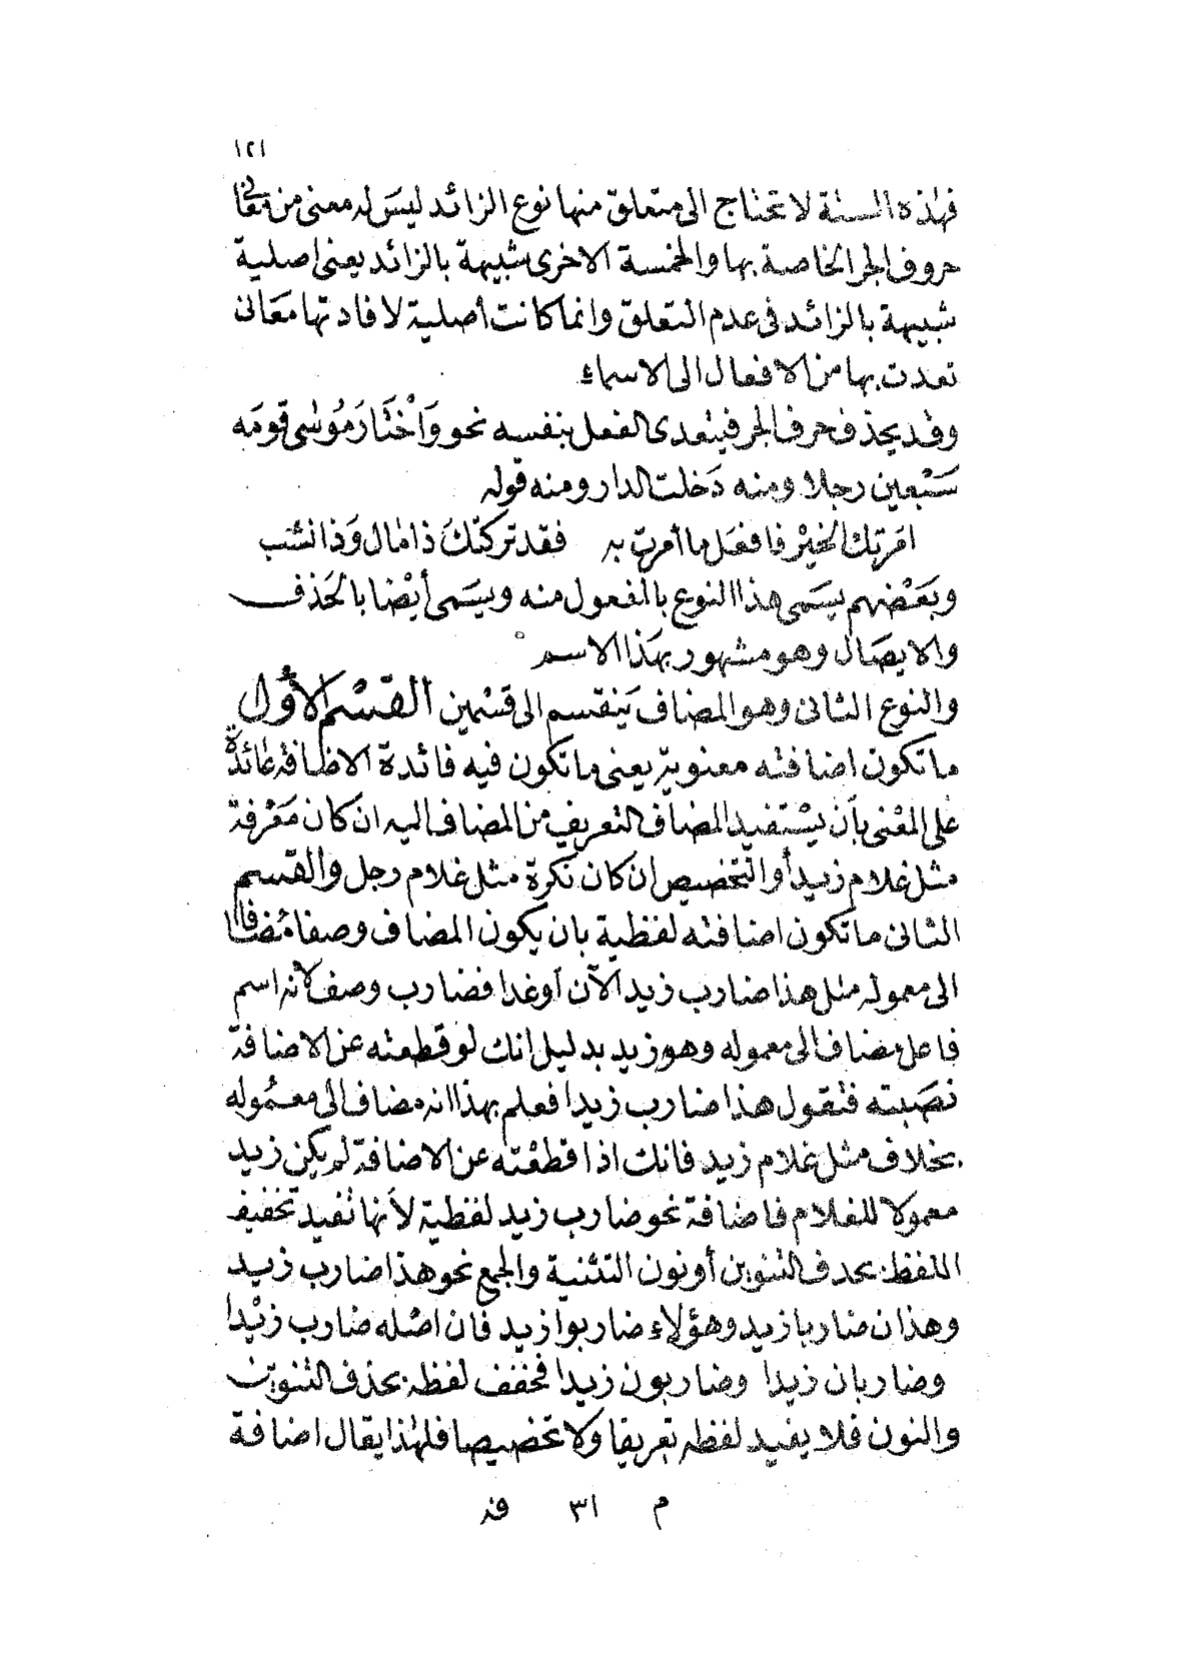 ١٢١
فهٰذه الستة لا تحتاج الى متعلق منها نوع الزائد ليسَ له معنى من معَانى
حروف الجر الخاصة بها والخمسة الاخرى شبيهة بالزائد يعنى اصلية
شبيهة بالزائد فى عدم التعلق وانما كانت أصلية لافادتها معَانى
تعدت بها من الافعال الى الاسماء
وقد يحذف حرف الجر فيتعدى الفعل بنفسه نحو وَاْخْتَارَ مُوسٰى قومَه
سَبْعين رجلا ومنه دَخلت الدار ومنه قوله
امَرتك الخيْر فافعَل ما أمرت به فقد تركتكَ ذا مٰال وَذا نشب
وبَعَضهم يسَمى هذا النوع بالمفعول منه ويسَمى أيْضا بالحَذف
والايصَال وهو مشهور بهَذا الاسم °
والنوع الثانى وهو المضاف يَنقسم الى قسْمين القسْم الأول
ما تكون اضافته معنوية يعنى ما تكون فيه فائدة الاضافة عٰائدة
على المعْنى بأن يسْتفيد المضاف التعريف من المضاف اليه ان كان مَعْرفة
مثل غلام زيد أو التخصيص ان كان نكرة مثل غلام رجل والقسم
الثانى ما تكون اضافته لفظية بان يكون المضاف وصفا مُضافا
الى معموله مثل هذا ضارب زيد الآن أوغدا فضارب وصف لانه اسم
فاعل مضاف الى معموله وهو زيد بدليل انك لو قطعته عن الاضافة
نصَبته فتقول هذا ضارب زيدا فعلم بهذا انه مضاف الى معْموله
بخلاف مثل غلام زيد فانك اذا قطعْته عن الاضافة لم يكن زيد
معمولا للغلام فاضافة نحو ضارب زيد لفظية لأنها تفيد تخفيف
اللفظ بحذف التنوين أو نون التثنية والجمع نحو هذا ضارب زيد
وهذان ضاربا زيد وهؤلاء ضاربوا زيد فان اصْله ضارب زيْدا
وضاربان زيدا وضاربون زيدا فخفف لفظه بحذف التنوين
والنون فلا يفيد لفظه تعريفا ولا تخصيصا فلهٰذا يقال اضافة
م ٣١ فد